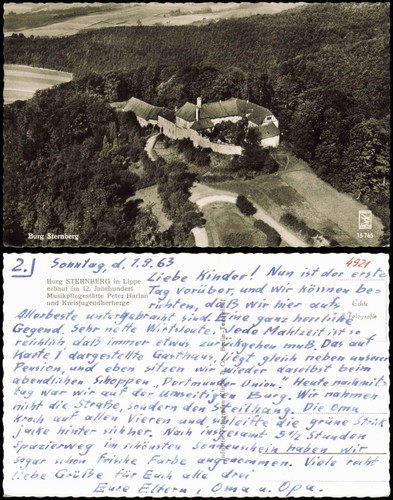 Burg Sternberg
15765
2.) Sonntag, d. 1.9.63
4921
Burg STERNBERG in Lippe
erbaut im 12. Jahrhundert
Musikpflegestätte Peter Harlan
und Kreisjugendherberge
Liebe Kinder! Nun ist der erste
Tag vorüber, und wir können be-
richten, daß wir hier aufs
Allerbeste untergebracht sind. Eine ganz herrliche
Gegend. Sehr nette Wirtsleute. Jede Mahlzeit ist so
reichlich, daß immer etwas zurückgehen muß. Das auf
Karte 1 dargestellte Gasthaus, liegt gleich neben unserer
Pension, und eben sitzen wir wieder daselbst beim
abendlichen Schoppen „Dortmunder Union." Heute nachmit-
tag war wir auf der Umseitigen Burg. Wir nahmen
nicht die Straße, sondern den Steilhang. Die Oma
kroch auf allen Vieren und schleifte die grüne Strick
jacke hinter sich her. Nach insgesamt 5½ Stunden
Spazierweg im schönsten Sonnenschein haben wir
sogar schon frische Farbe angenommen. Viele recht
liebe Grüße für Euch alle drei
Eure Eltern, Oma u. Opa.
Echte
Fotografie